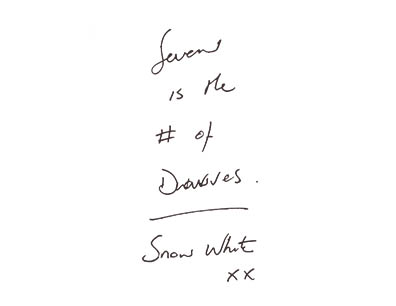 Seven
is the
# of
Dwarves.
Snow White
xx